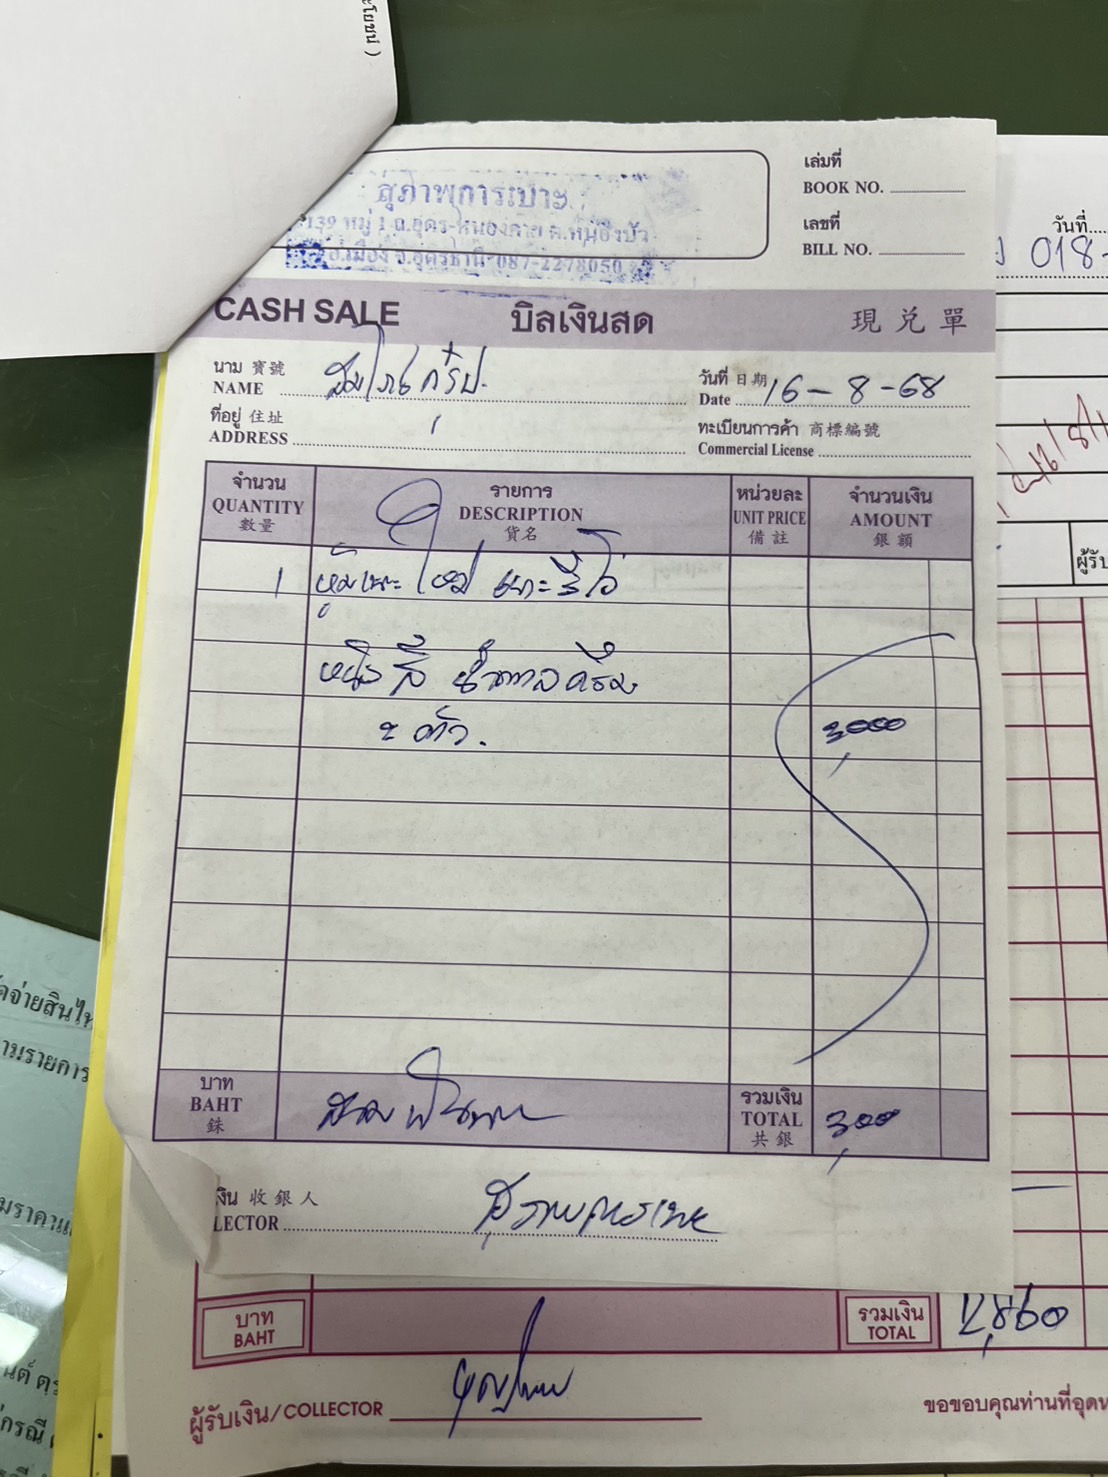 ะโยชน์ )
สุภาพการเบาะ
139 หมู่ 1 ถ.อุดร-หนองคาย ต.หมูม่น
อ.เมือง จ.อุดรธานี 087-2278050
เล่มที่
BOOK NO.
เลขที่
BILL NO.
วันที่
018-
CASH SALE บิลเงินสด 現兌單
นาม 寶號
NAME
วันที่ 日期
Date 16-8-68
ที่อยู่ 住址
ADDRESS
ทะเบียนการค้า 商標編號
Commercial License
จำนวน รายการ หน่วยละ จำนวนเงิน
QUANTITY DESCRIPTION UNIT PRICE AMOUNT
數量 貨名 備註 銀額
ผู้รับ
1 หุ้มเบาะ ใหม่ เบาะ
หนัง สี น้ำตาลครีม
2 ตัว. 3,000
บาท
BAHT
銖
สามพันบาท
รวมเงิน
TOTAL
共銀
3,000
งิน 收銀人
LECTOR สุภาพการเบาะ
จ่ายสินไห
ามรายการ
มราคาแ
บาท
BAHT
รวมเงิน
TOTAL
2,860
ผู้รับเงิน/COLLECTOR
ขอขอบคุณท่านที่อุดห